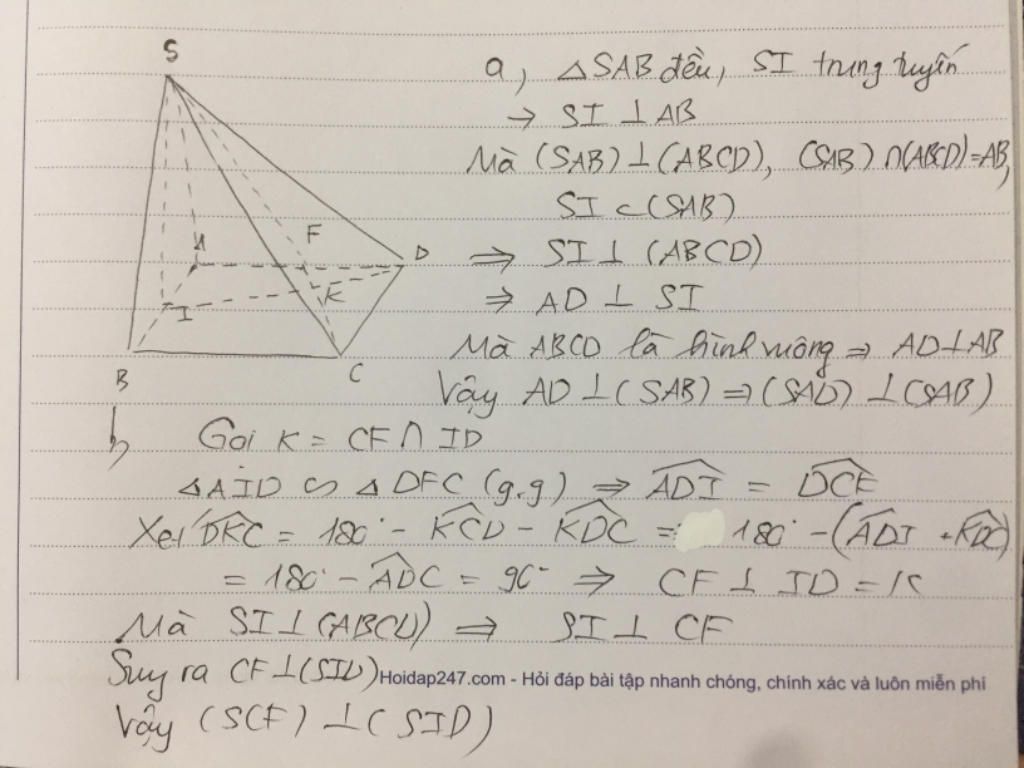 S
F
A
D
K
I
B
C
a, △SAB đều, SI trung tuyến
→ SI ⊥ AB
Mà (SAB) ⊥ (ABCD), (SAB) ∩ (ABCD) = AB,
SI ⊂ (SAB)
⇒ SI ⊥ (ABCD)
⇒ AD ⊥ SI
Mà ABCD là hình vuông ⇒ AD ⊥ AB
Vậy AD ⊥ (SAB) ⇒ (SAD) ⊥ (SAB)
b, Gọi K = CF ∩ ID
△AID ∽ △DFC (g.g) ⇒ \widehat{ADI} = \widehat{DCF}
Xét \widehat{DKC} = 180° - \widehat{KCD} - \widehat{KDC} = 180° - (\widehat{ADI} + \widehat{KDC})
= 180° - \widehat{ADC} = 90° ⇒ CF ⊥ ID = K
Mà SI ⊥ (ABCD) ⇒ SI ⊥ CF
Suy ra CF ⊥ (SID)
Hoidap247.com - Hỏi đáp bài tập nhanh chóng, chính xác và luôn miễn phí
Vậy (SCF) ⊥ (SID)